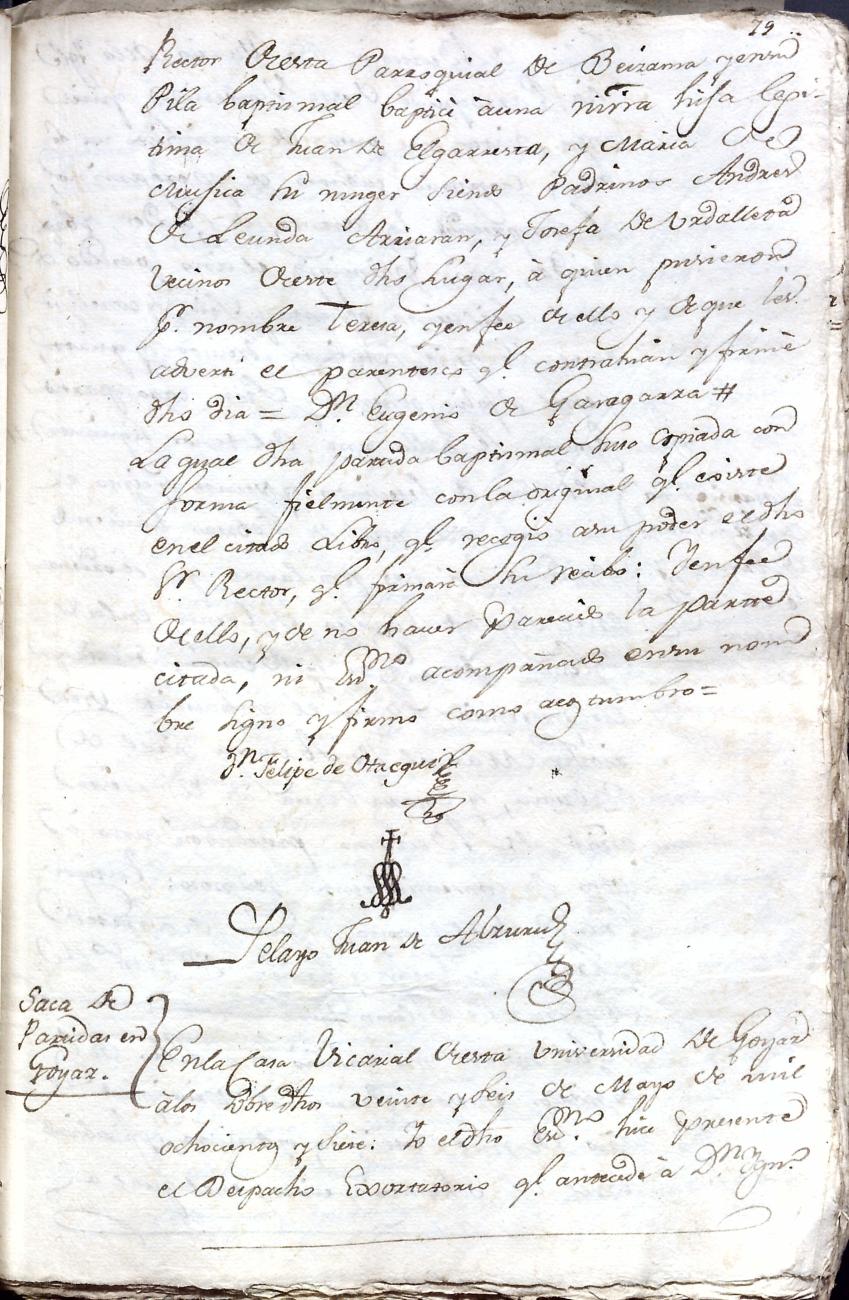 79
Rector desta Parroquial de Beizama y en su
Pila baptismal baptice à una niña hija legi-
tima de Juan de Elgarresta, y Maria de
Mugica su muger siendo Padrinos Andres
de Leunda Arriaran, y Josefa de Urdalleta
vecinos deste dho Lugar, à quien pusieron
pr. nombre Teresa, y en fee de ello y de que les
adverti el parentesco ql. contrahian y firmè
dho dia = Dn. Eugenio de Garagarza #
La qual dha partida baptismal hiso copiada con
forma fielmente con la original ql. existe
en el citado Libro, ql. recogiò a su poder el dho
Sr. Rector, ql. firmarà su recibo: Y en fee
de ello, y de no haver parecido la parte
citada, ni Esno acompañado en su nom
bre signo y firmo como acostumbro =
Dn. Felipe de Otaegui
Pelayo Juan de
Saca de
Partidas en
Goyaz.
En la Casa Vicarial desta Universidad de Goyaz
à los sobredhos veinte y seis de Mayo de mil
ochocientos y siete: Yo el dho Esno. hice presente
el Despacho Exortatorio ql. antecede à Dn. Ygno.